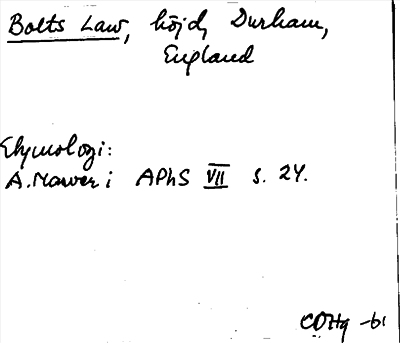 Bolts Law, höjd, Durham,
England
Etymologi:
A. Mawer i APhS VII s. 24.